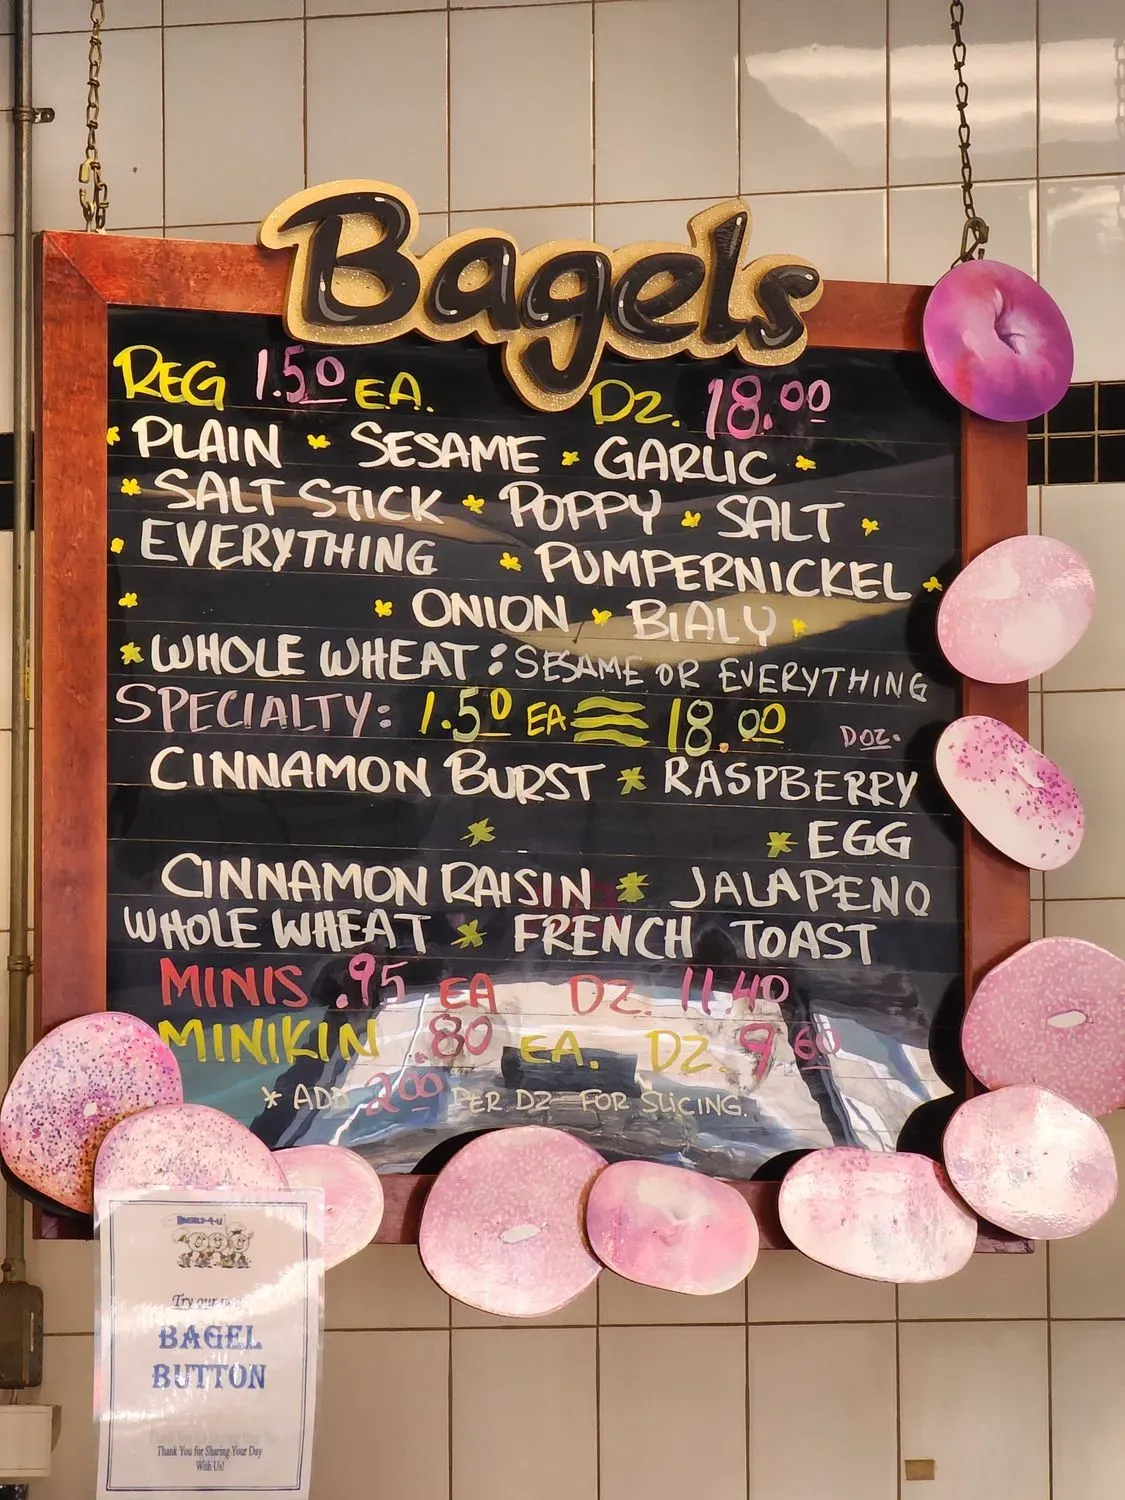 Bagels
REG 1.50 EA. DZ. 18.00
* PLAIN * SESAME * GARLIC *
* SALT STICK * POPPY * SALT *
* EVERYTHING * PUMPERNICKEL *
* * ONION * BIALY *
* WHOLE WHEAT : SESAME OR EVERYTHING
SPECIALTY: 1.50 EA 18.00 DOZ.
CINNAMON BURST * RASPBERRY
* * EGG
CINNAMON RAISIN * JALAPENO
WHOLE WHEAT * FRENCH TOAST
MINIS .95 EA DZ. 11.40
MINIKIN .80 EA. DZ. 9.60
* ADD 2.00 PER DZ FOR SLICING.
BAGELS-4-U
Try our
BAGEL
BUTTON
Thank You for Sharing Your Day
With Us!